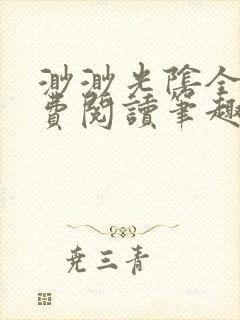 渺渺光陰全
費閱讀筆趣
尭三青